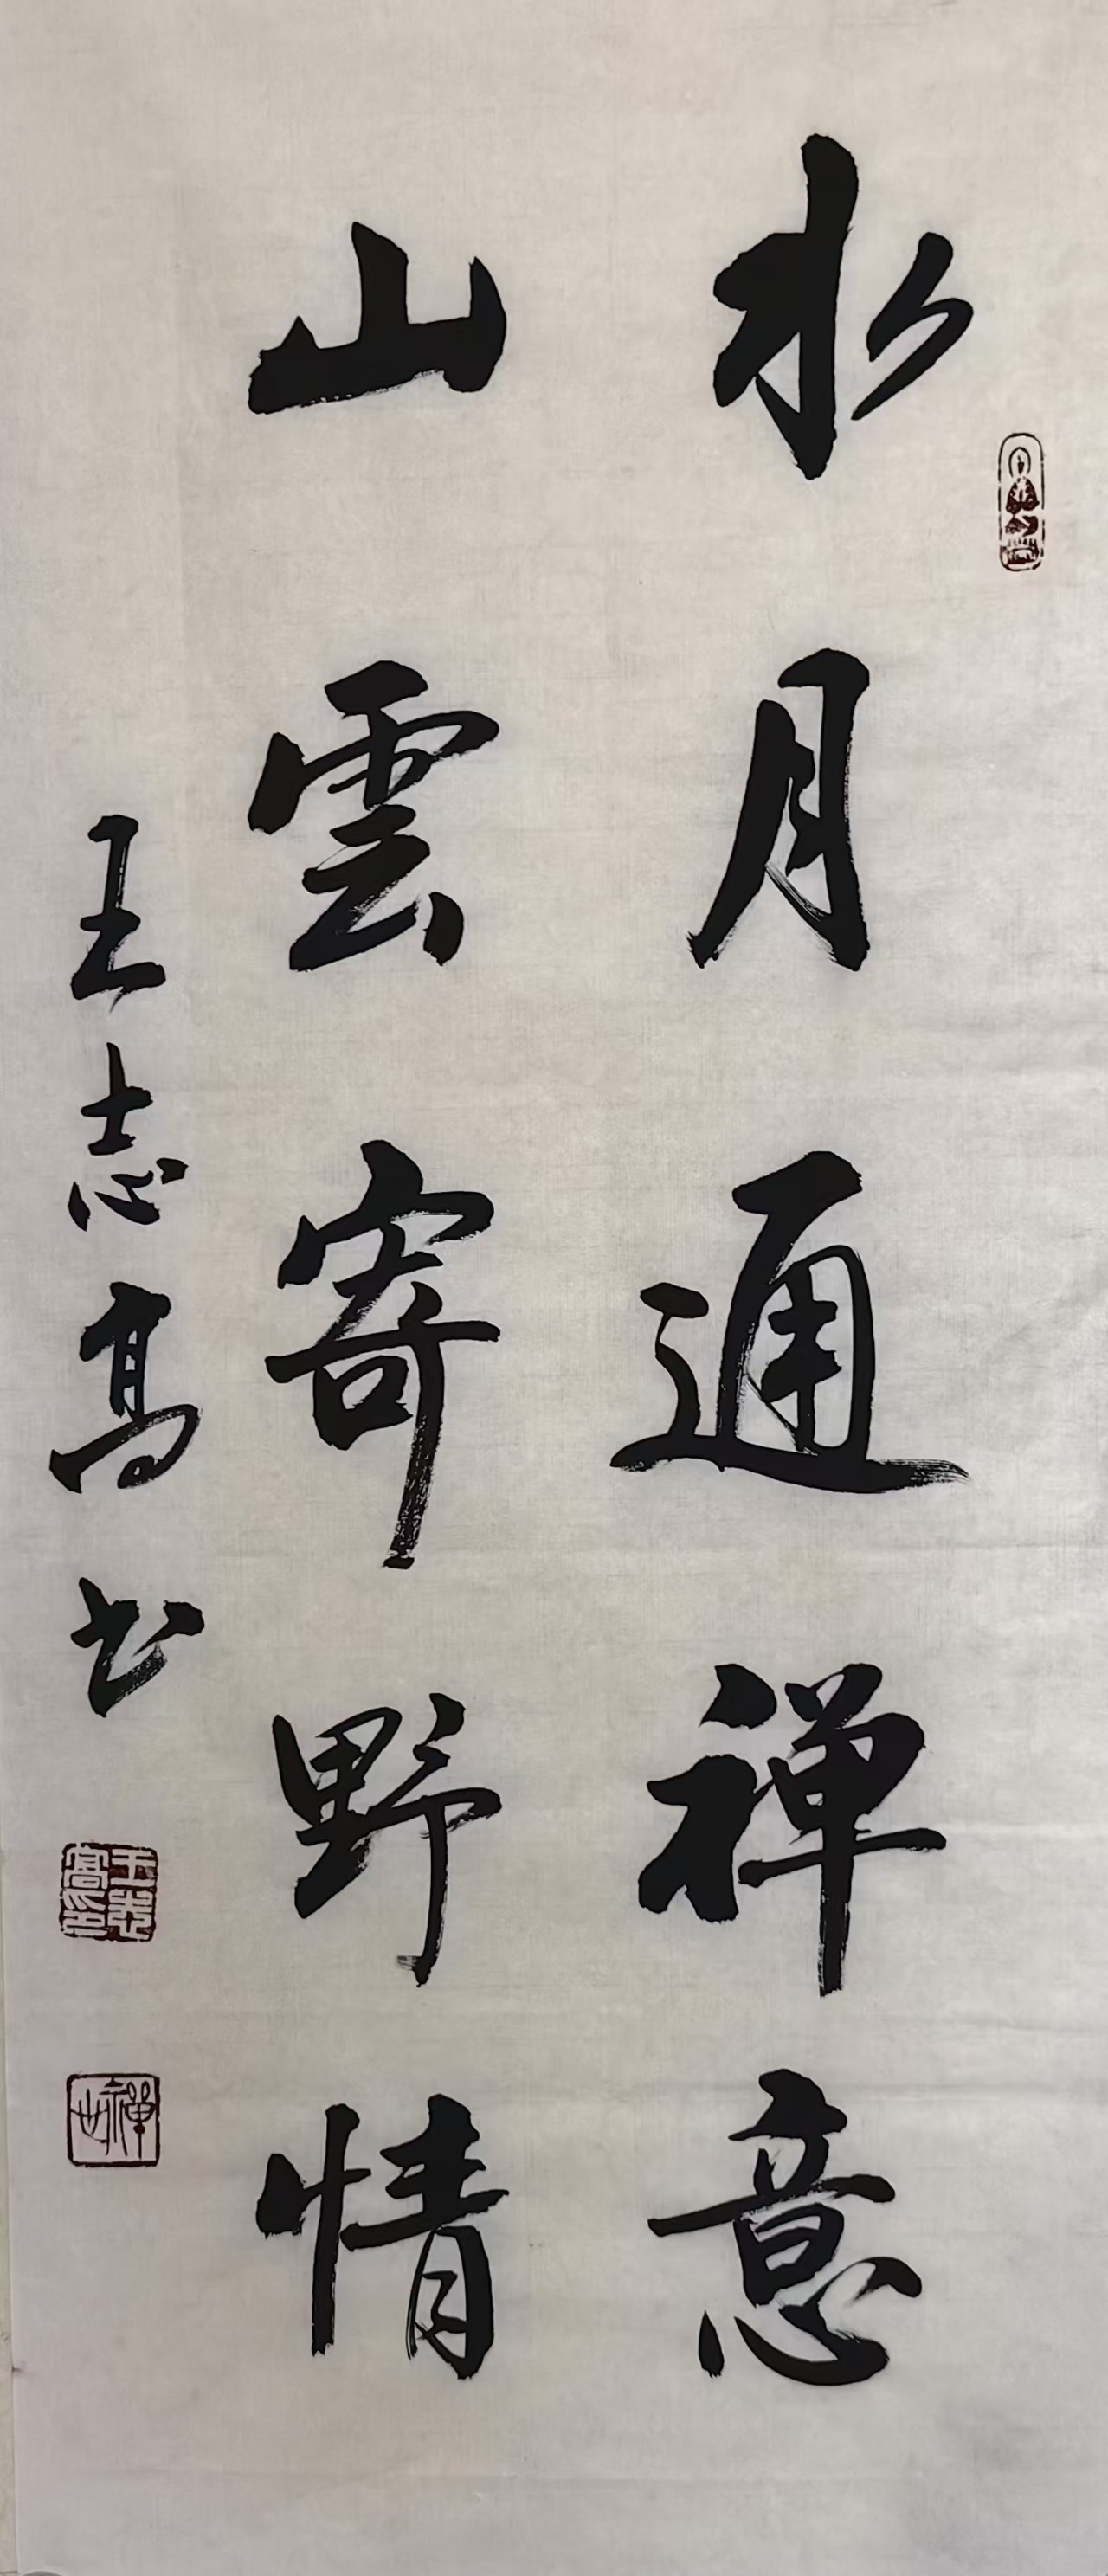 水月通禅意
山雲寄野情
王志高书
王志高印
禅世